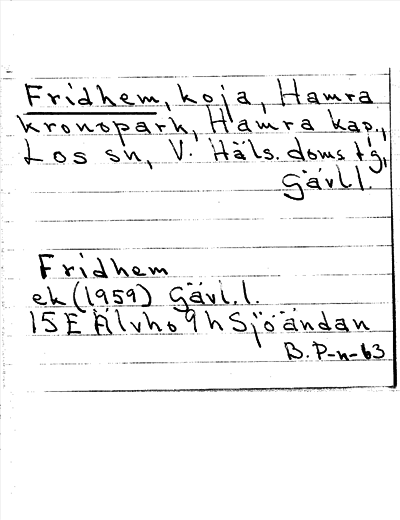 Fridhem, koja, Hamra
kronopark, Hamra kap.,
Los sn, V. Häls. doms tg,
Gävl l.
Fridhem
ek (1959) Gävl. l.
15E Älvho 9h Sjöändan
B. P-n-63